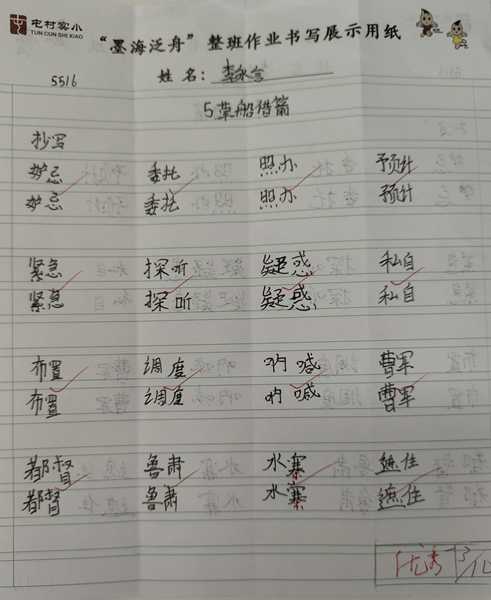 屯村实小
TUN CUN SHI XIAO
“墨海泛舟”整班作业书写展示用纸
5516
姓名：李永言
5草船借箭
抄写
妒忌 委托 照办 预计
妒忌 委托 照办 预计
紧急 探听 疑惑 私自
紧急 探听 疑惑 私自
布置 调度 呐喊 曹军
布置 调度 呐喊 曹军
都督 鲁肃 水寨 遮住
都督 鲁肃 水寨 遮住
优秀